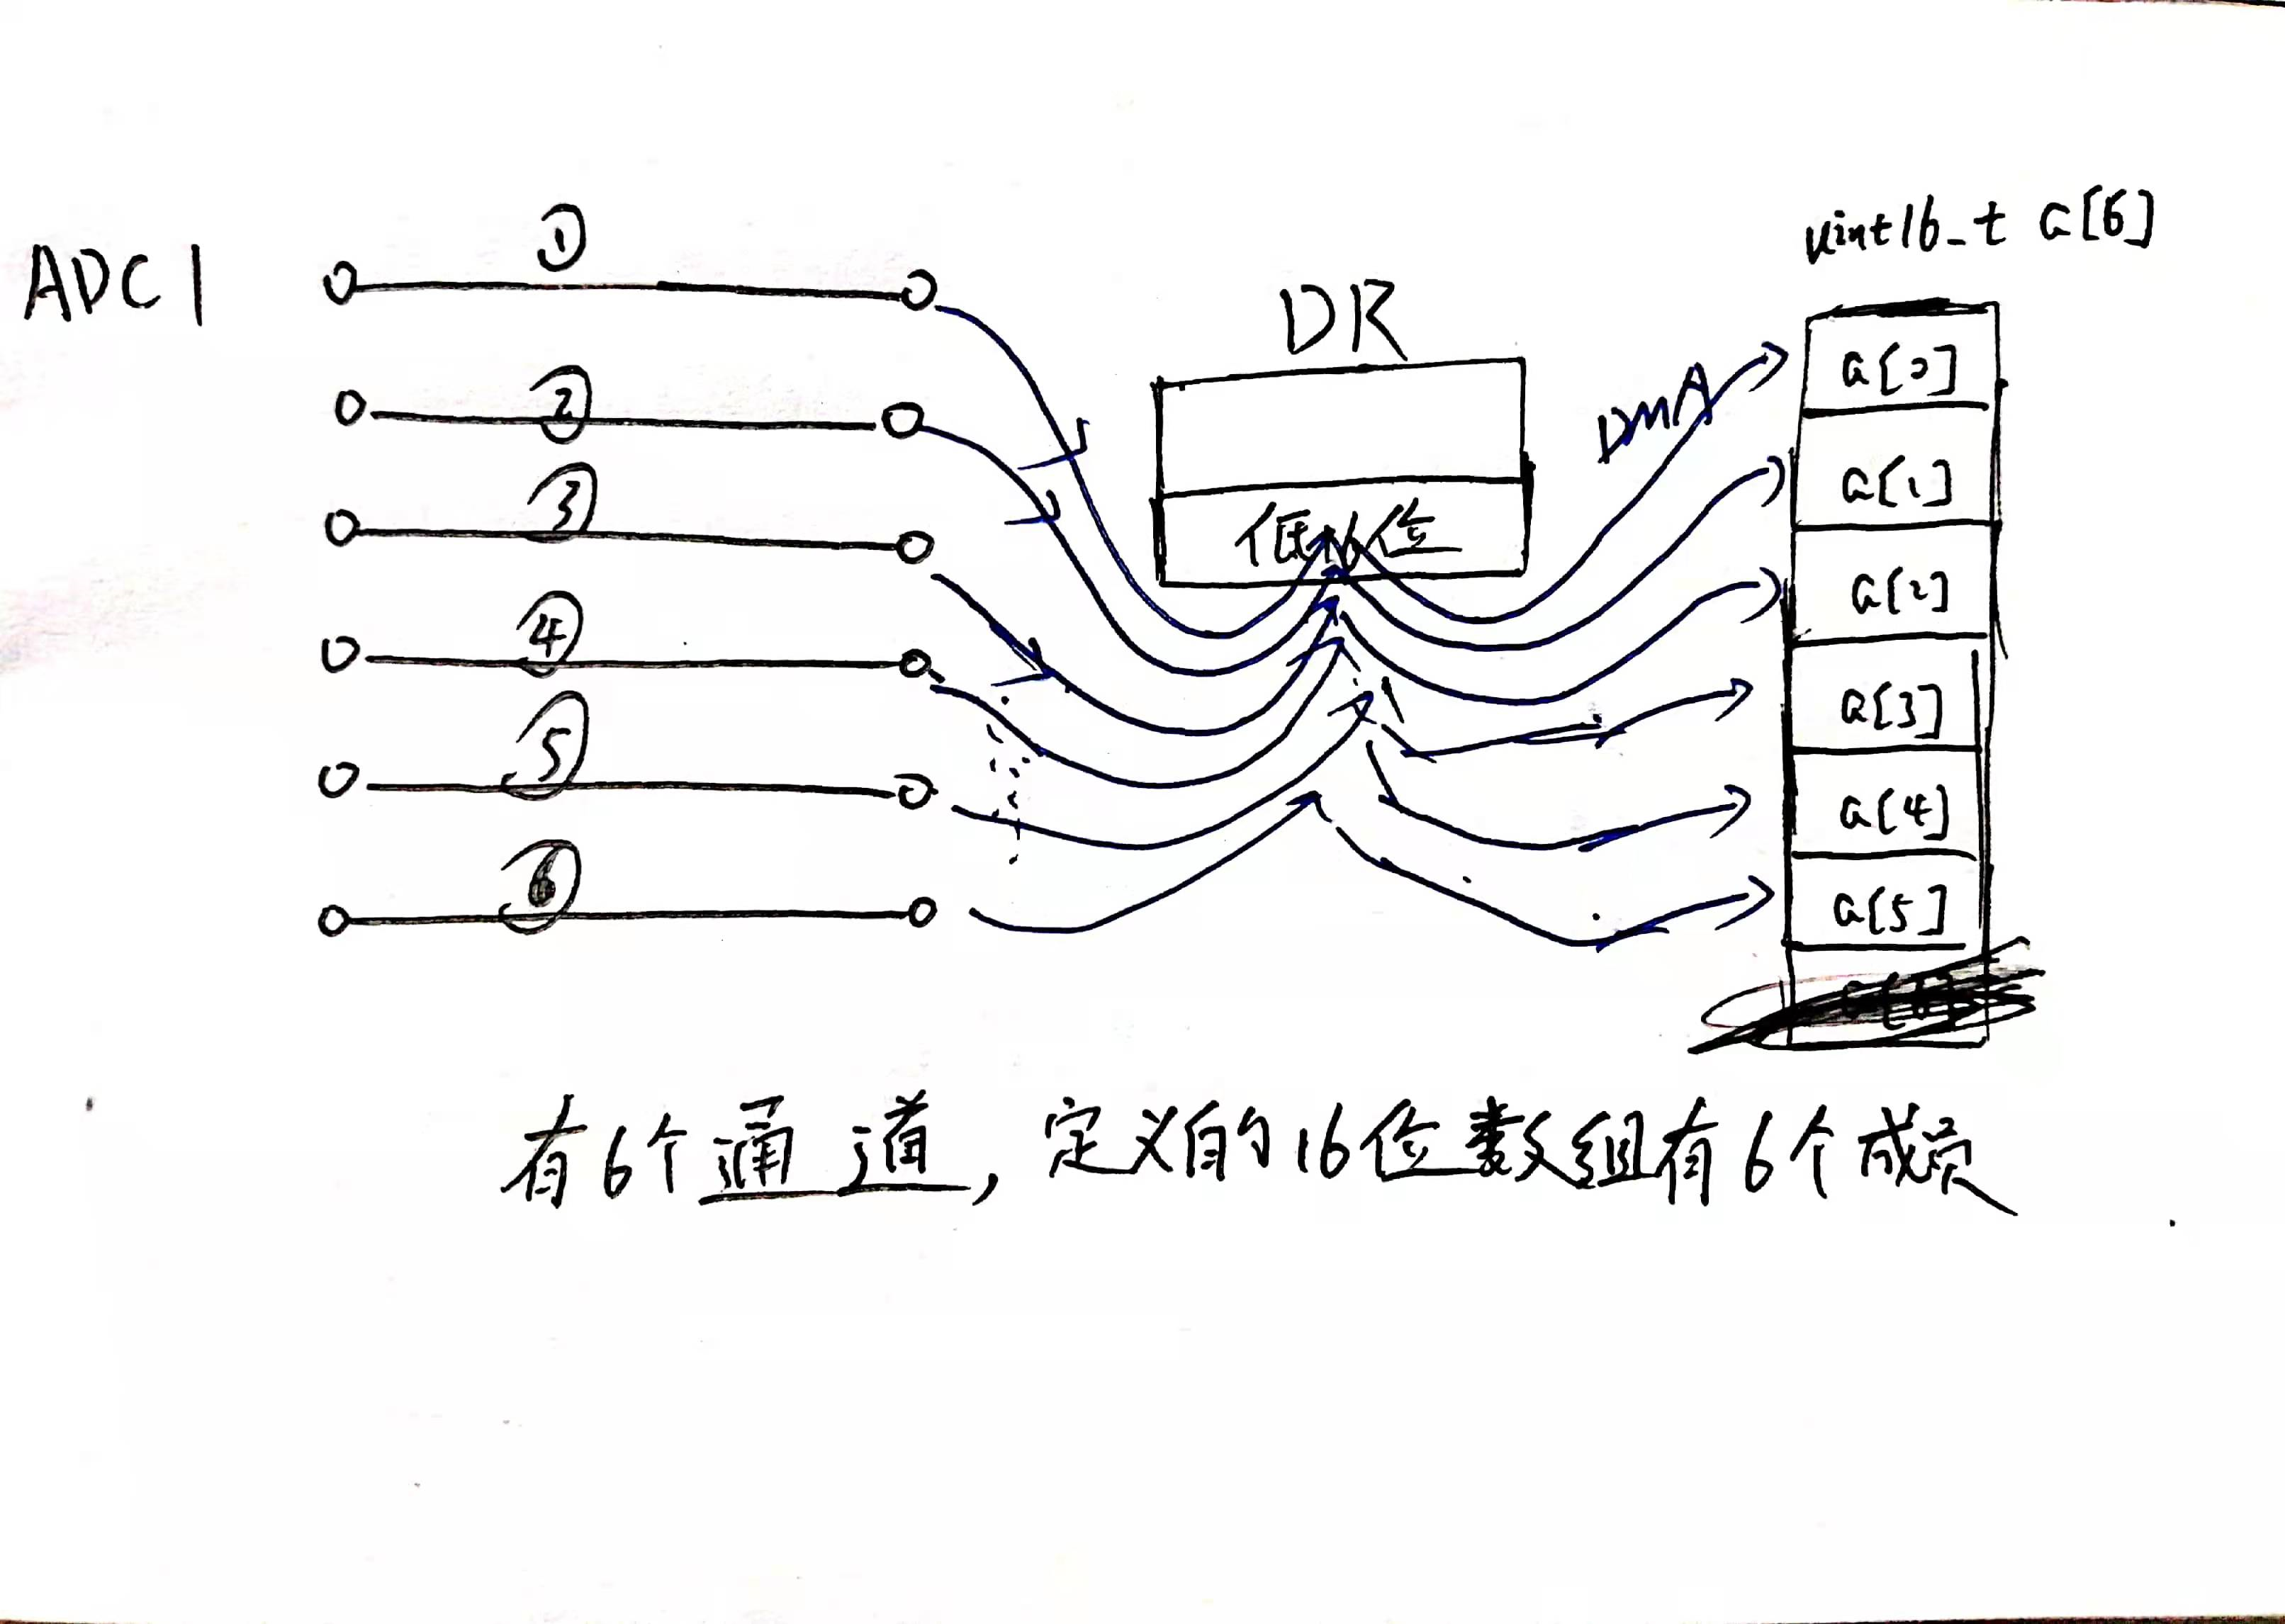 ADC1
①
②
③
④
⑤
⑥
DR
低16位
DMA
uint16_t a[6]
a[0]
a[1]
a[2]
a[3]
a[4]
a[5]
有6个通道，定义的16位数组有6个成员